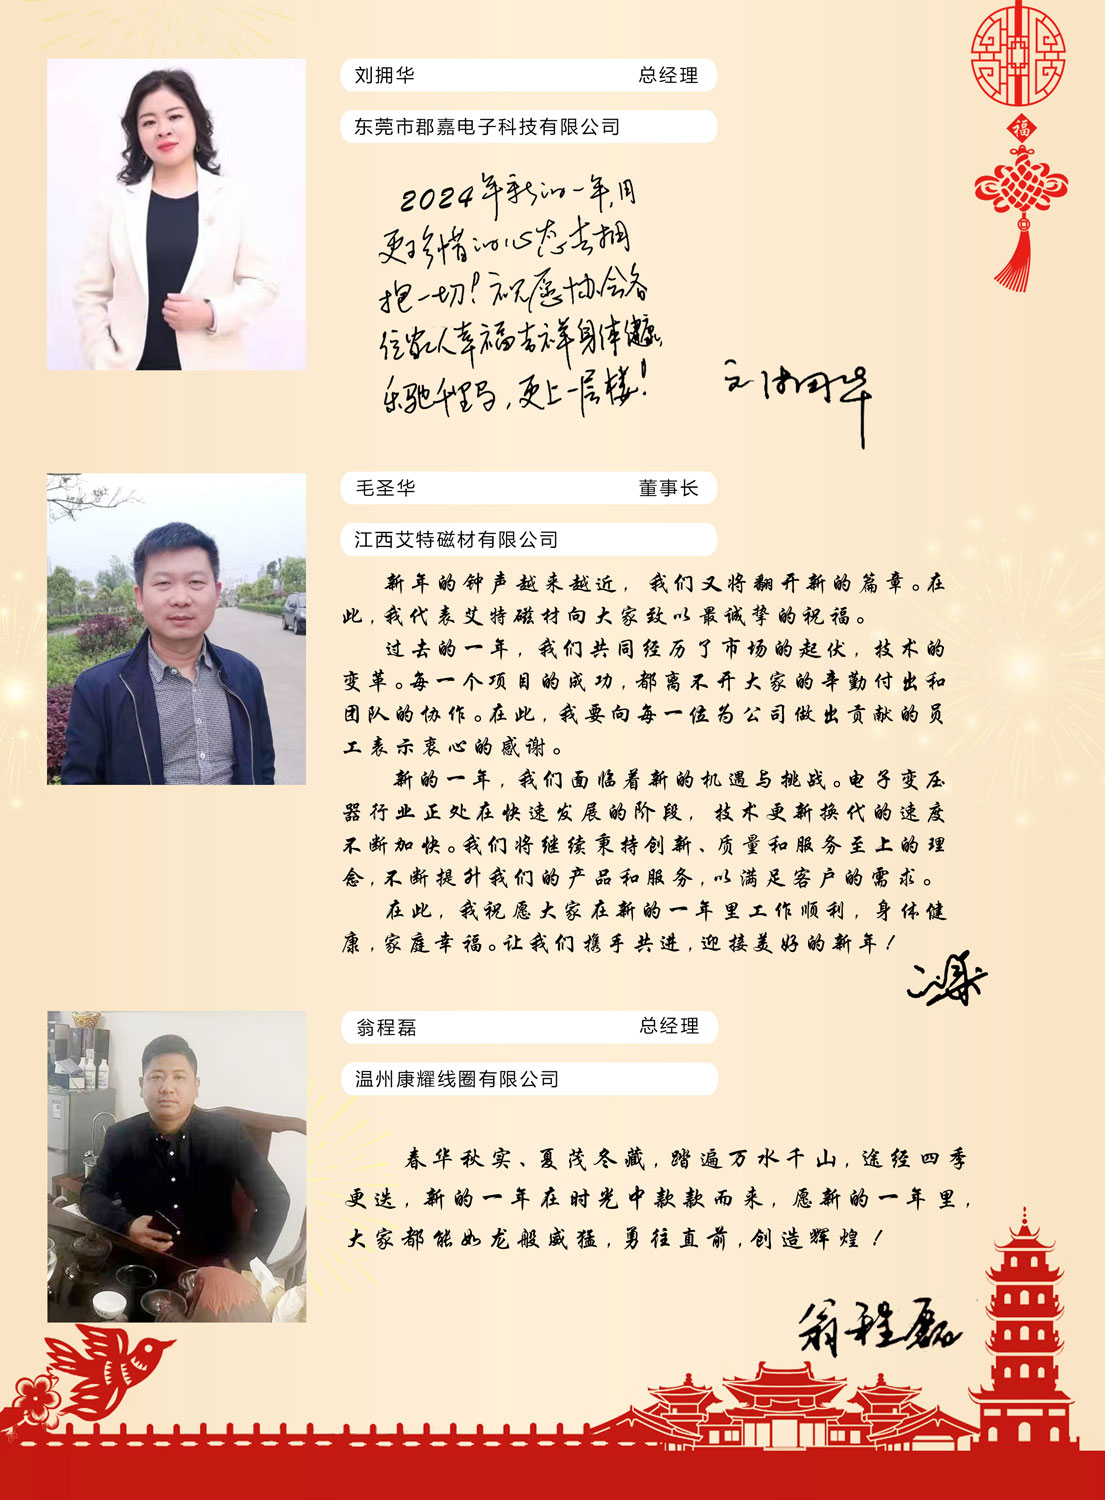 福
刘拥华 总经理
东莞市郡嘉电子科技有限公司
2024年新的一年,用
更珍惜的心态去拥
抱一切!祝愿协会各
位家人幸福吉祥身体健康,
乐驰千里马,更上一层楼!
刘拥华
毛圣华 董事长
江西艾特磁材有限公司
新年的钟声越来越近，我们又将翻开新的篇章。在
此,我代表艾特磁材向大家致以最诚挚的祝福。
过去的一年，我们共同经历了市场的起伏，技术的
变革。每一个项目的成功,都离不开大家的辛勤付出和
团队的协作。在此,我要向每一位为公司做出贡献的员
工表示衷心的感谢。
新的一年，我们面临着新的机遇与挑战。电子变压
器行业正处在快速发展的阶段，技术更新换代的速度
不断加快。我们将继续秉持创新、质量和服务至上的理
念,不断提升我们的产品和服务,以满足客户的需求。
在此，我祝愿大家在新的一年里工作顺利，身体健
康,家庭幸福。让我们携手共进,迎接美好的新年!
翁程磊 总经理
温州康耀线圈有限公司
春华秋实、夏茂冬藏,踏遍万水千山,途经四季
更迭，新的一年在时光中款款而来，愿新的一年里,
大家都能如龙般威猛,勇往直前,创造辉煌!
翁程磊